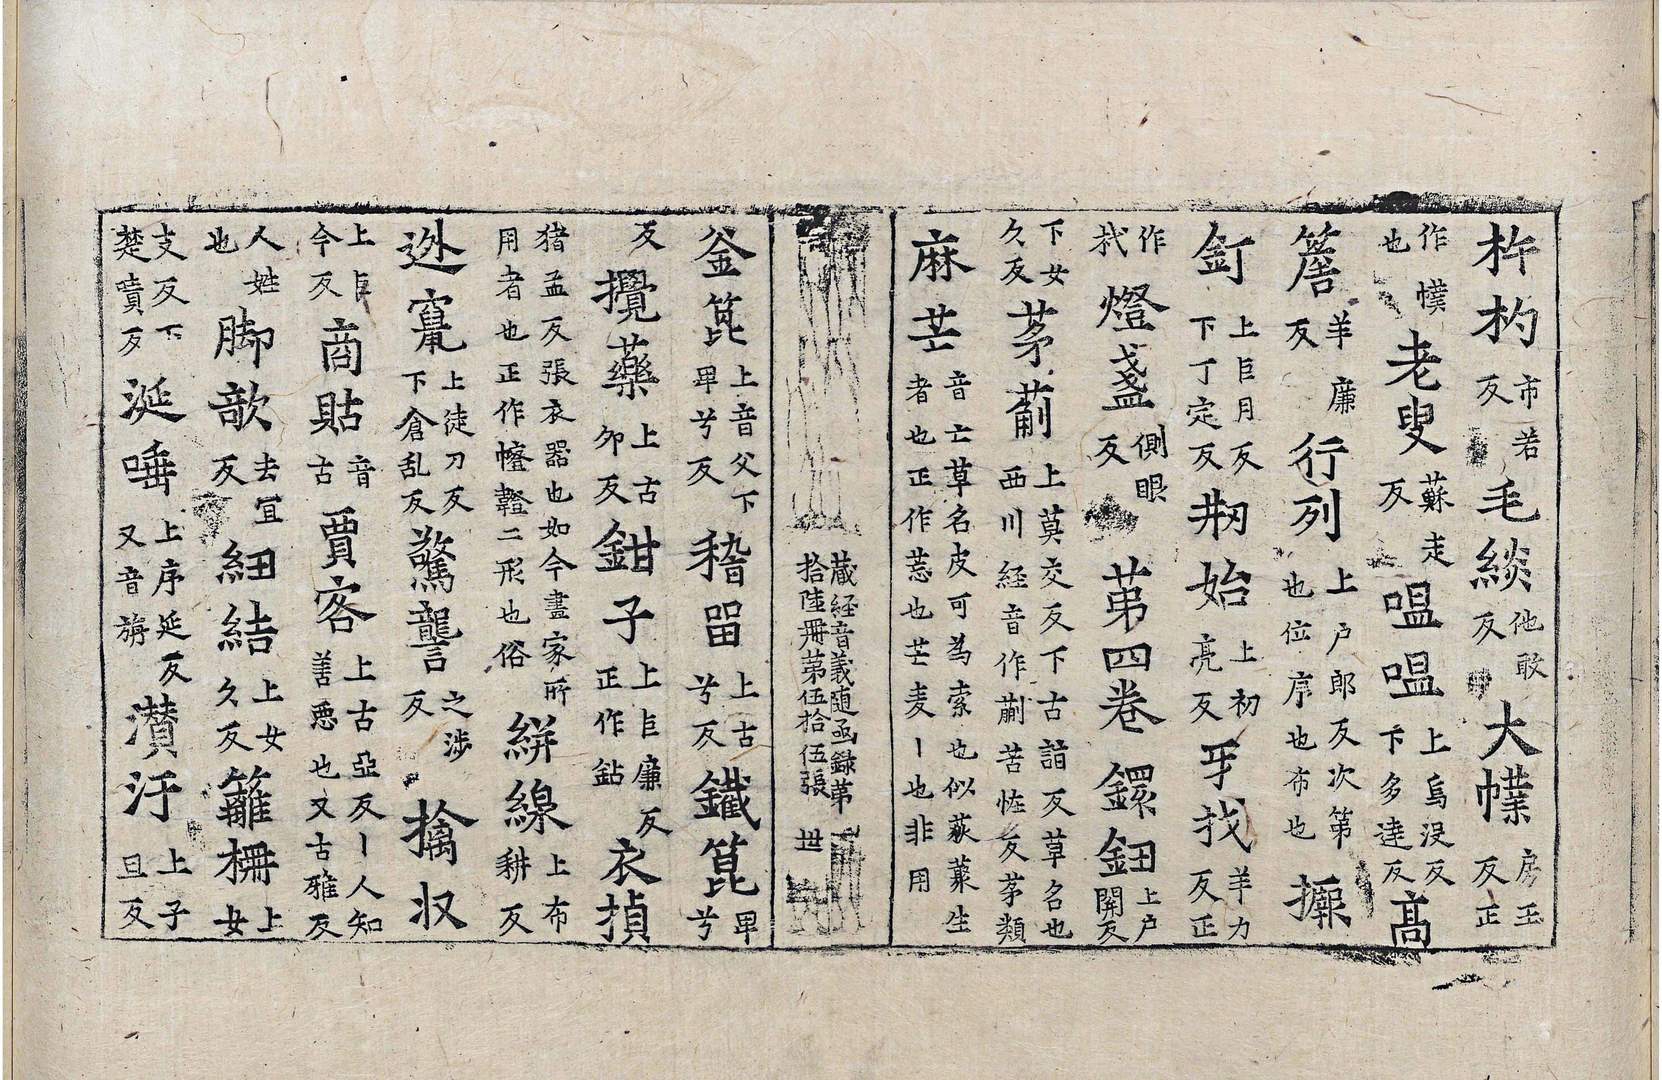 杵杓市若反毛緂他敢反大幞房玉反正
作幞也老叟蘇走反嗢嗢上烏没反下多達反高
簷羊廉反行列上户郎反次第也位序也布也摷
釘上巨月反下丁定反剏始上初亮反牙找羊力反正
作杙燈盞側眼反苐四卷鏍鈕上户關反
下女久反茅葪上莫交反下古詣反草名也西川経音作蒯苦恠反茅類
麻芒音亡草名皮可為索也似菽䕠生者也正作䓤也芒麦丨也非用
蔵経音義随函録第拾陸冊第伍拾伍張 丗
釡箆上音父下𤰞兮反稽留上古兮反鐵箆𤰞兮
反攪藥上古夘反鉗子上巨廉反正作鉆衣揁
猪孟反張衣器也如今畫家所用者也正作㡧韼二形也俗絣線上布耕反
迯竄上徒刀反下倉乱反驚讋之涉反擒収
上巨今反商貼音古賈客上古亞反丨人知善惡也又古雅反
人姓也脚敧去冝反細結上女久反籬柵上女
支反下楚責反涎唾上序延反又音旃灒汙上子旦反